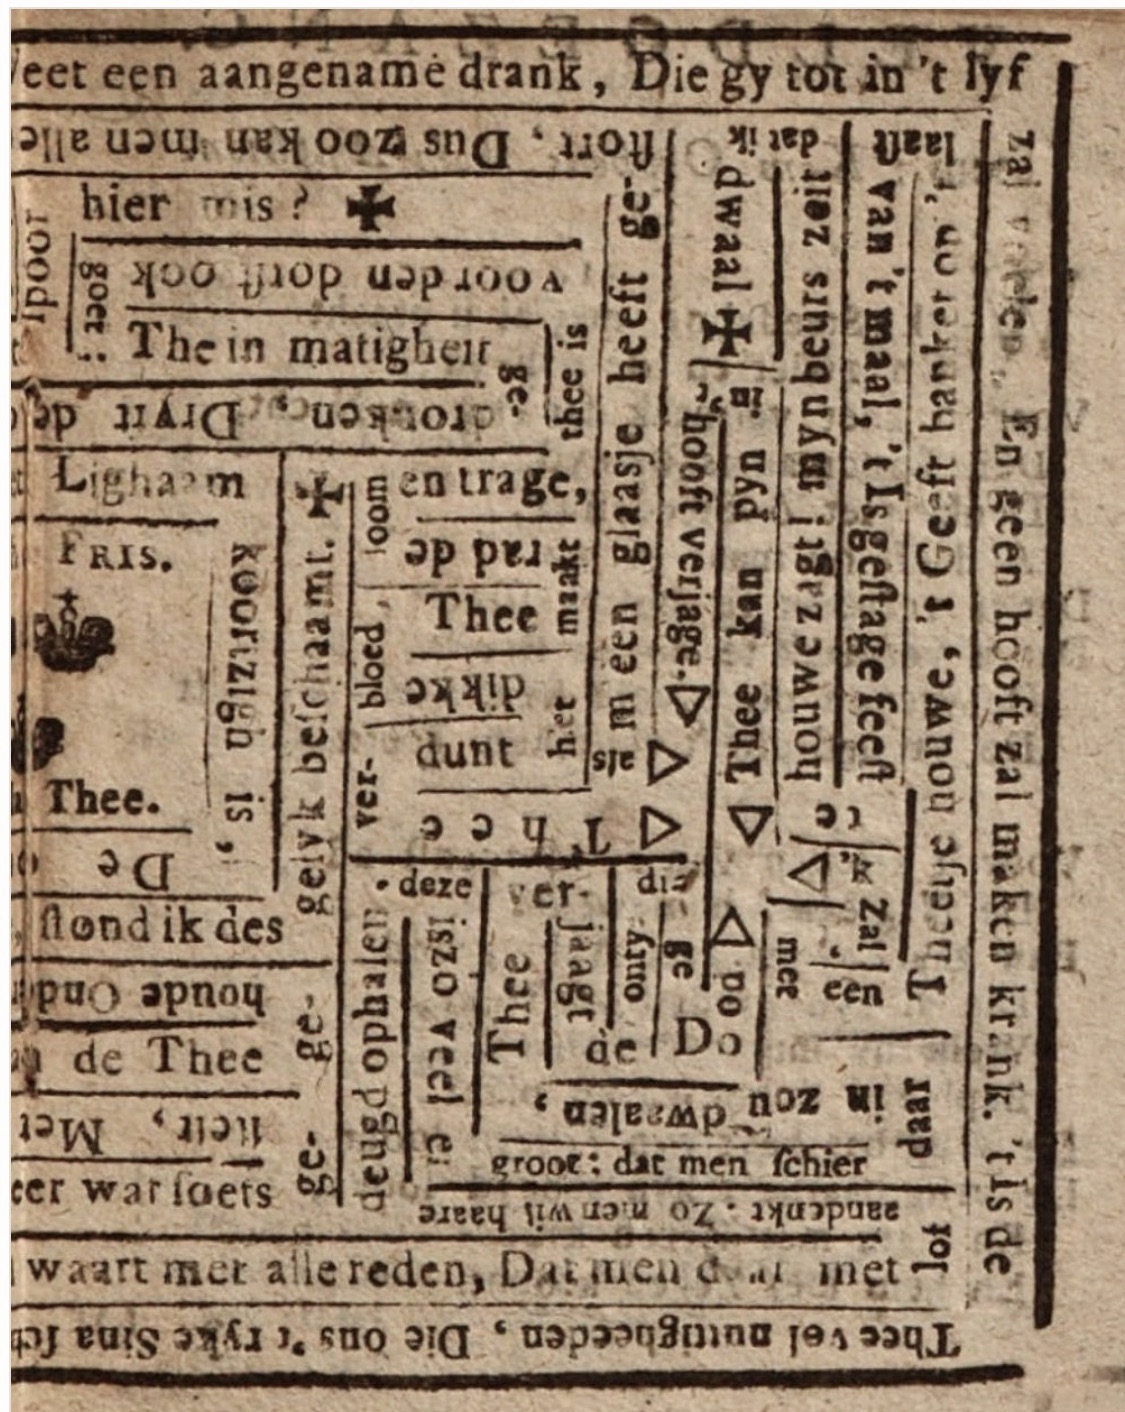 eet een aangename drank, Die gy tot in 't lyf
zal Engeen hooft zal maken krank. 't Is de
Thee vel nuttigheeden, Die ons 't ryke Sina sch
stort, Dus zoo kan men alle
hier mis? ✠
voorden dorst ook
goet
The in matigheit
ge-
dronken, Dryft de
thee is
Lighaam
FRIS.
Thee.
koortzigh is,
De
stond ik des
honde Ond
de Thee
steit, Met
eer wat soets
gelyk beschaamt. ✠
ge- ge-
loom
en trage,
rad de
maakt
Thee
bloed,
dikke
het
dunt
ver-
Thee ▷
als ▷
m een glaasje heeft ge-
dwaal ✠
hooft verjage. ▷
dat ik
in
Thee kan pyn
houwe zagt! myn beurs zeit
laast
van 't maal, 't Is gestage feest
Theetje houwe, 't Geeft banket op 't
te
'k zal
een
met
deze
deugd ophalen
zo veel
Thee
ver-
jaagt
de
onty-
die
ge
Dood
daar
in zou
dwaalen,
groot: dat men schier
aandenkt. Zo men wil haare
lof
waart met alle reden, Dat men met